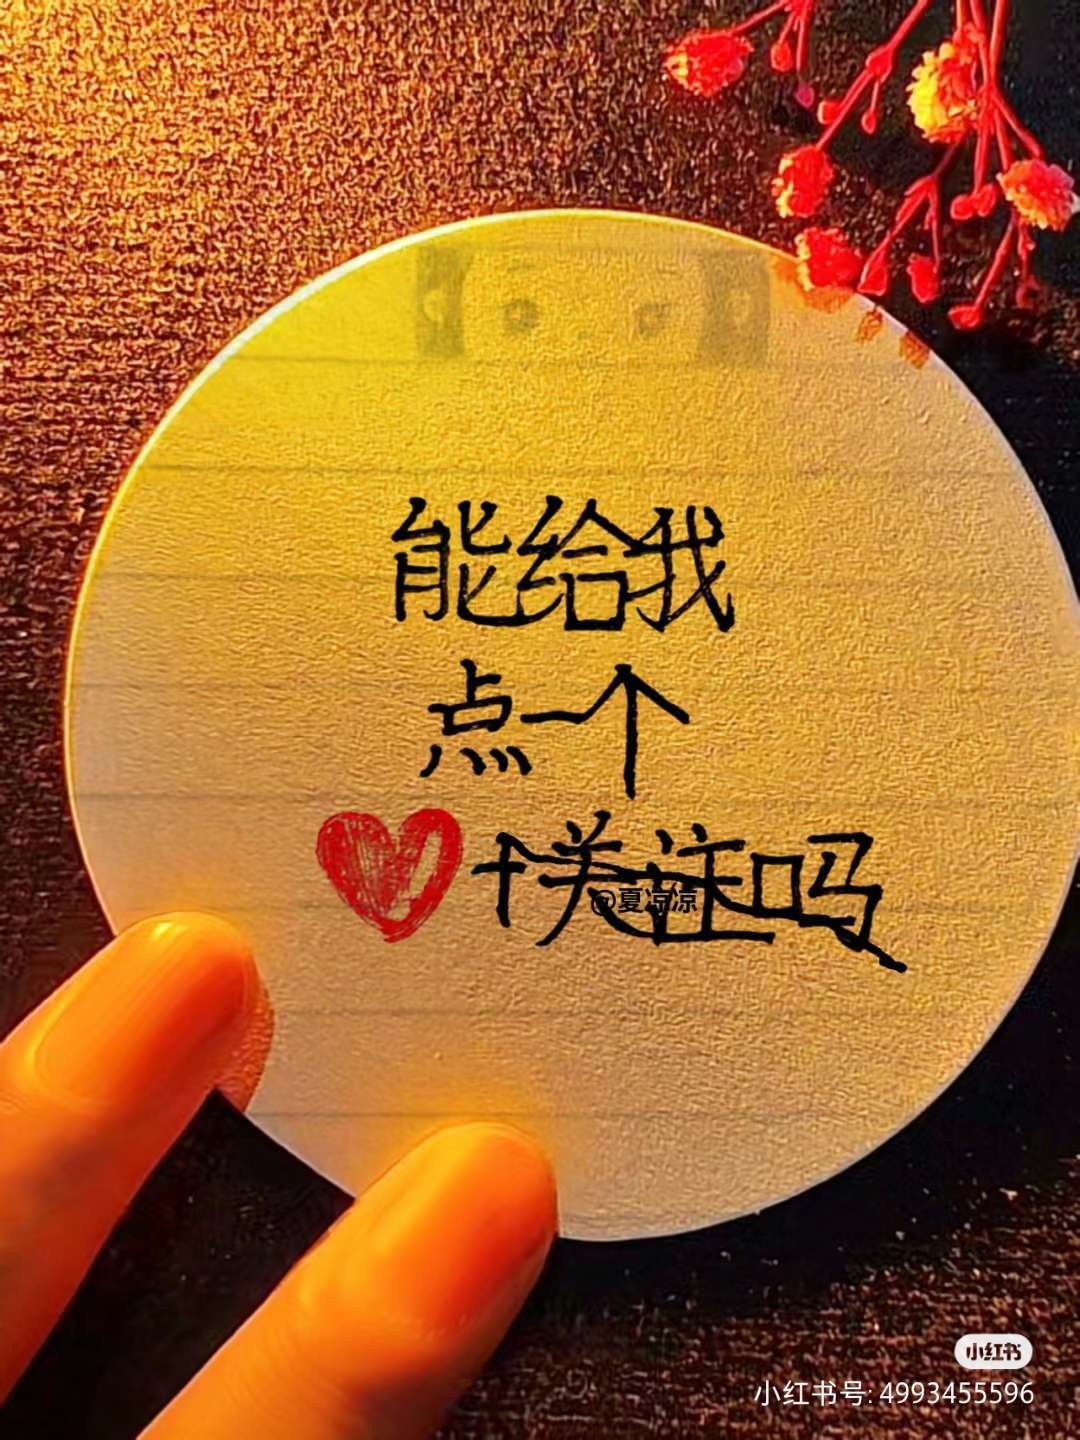 能给我
点一个
❤️+关注吗
@夏凉凉
小红书
小红书号: 4993455596